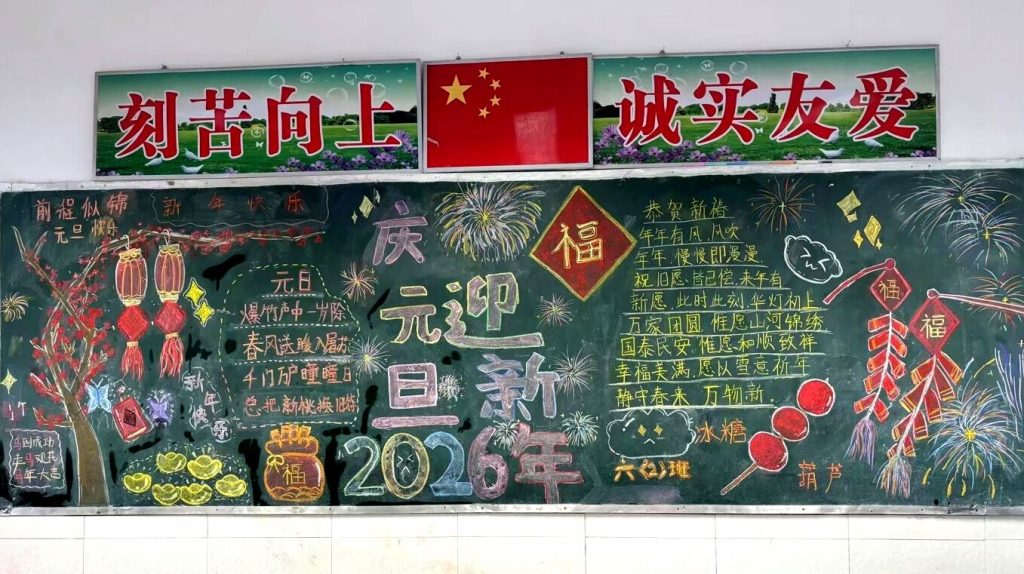 刻苦向上
诚实友爱
前程似锦
元旦快乐
新年快乐
庆元旦
迎新
2026年
福
元日
爆竹声中一岁除
春风送暖入屠苏
千门万户曈曈日
总把新桃换旧符
新年快乐
福
恭贺新禧
年年有风,风吹
年年,慢慢即漫漫
祝旧愿,皆已偿,来年有
新愿,此时此刻,华灯初上
万家团圆,惟愿山河锦绣
国泰民安,惟愿和顺致祥
幸福美满,愿以雪意祈年
静守春来,万物新。
六(2)班
冰糖
葫芦
福
福
马年大吉